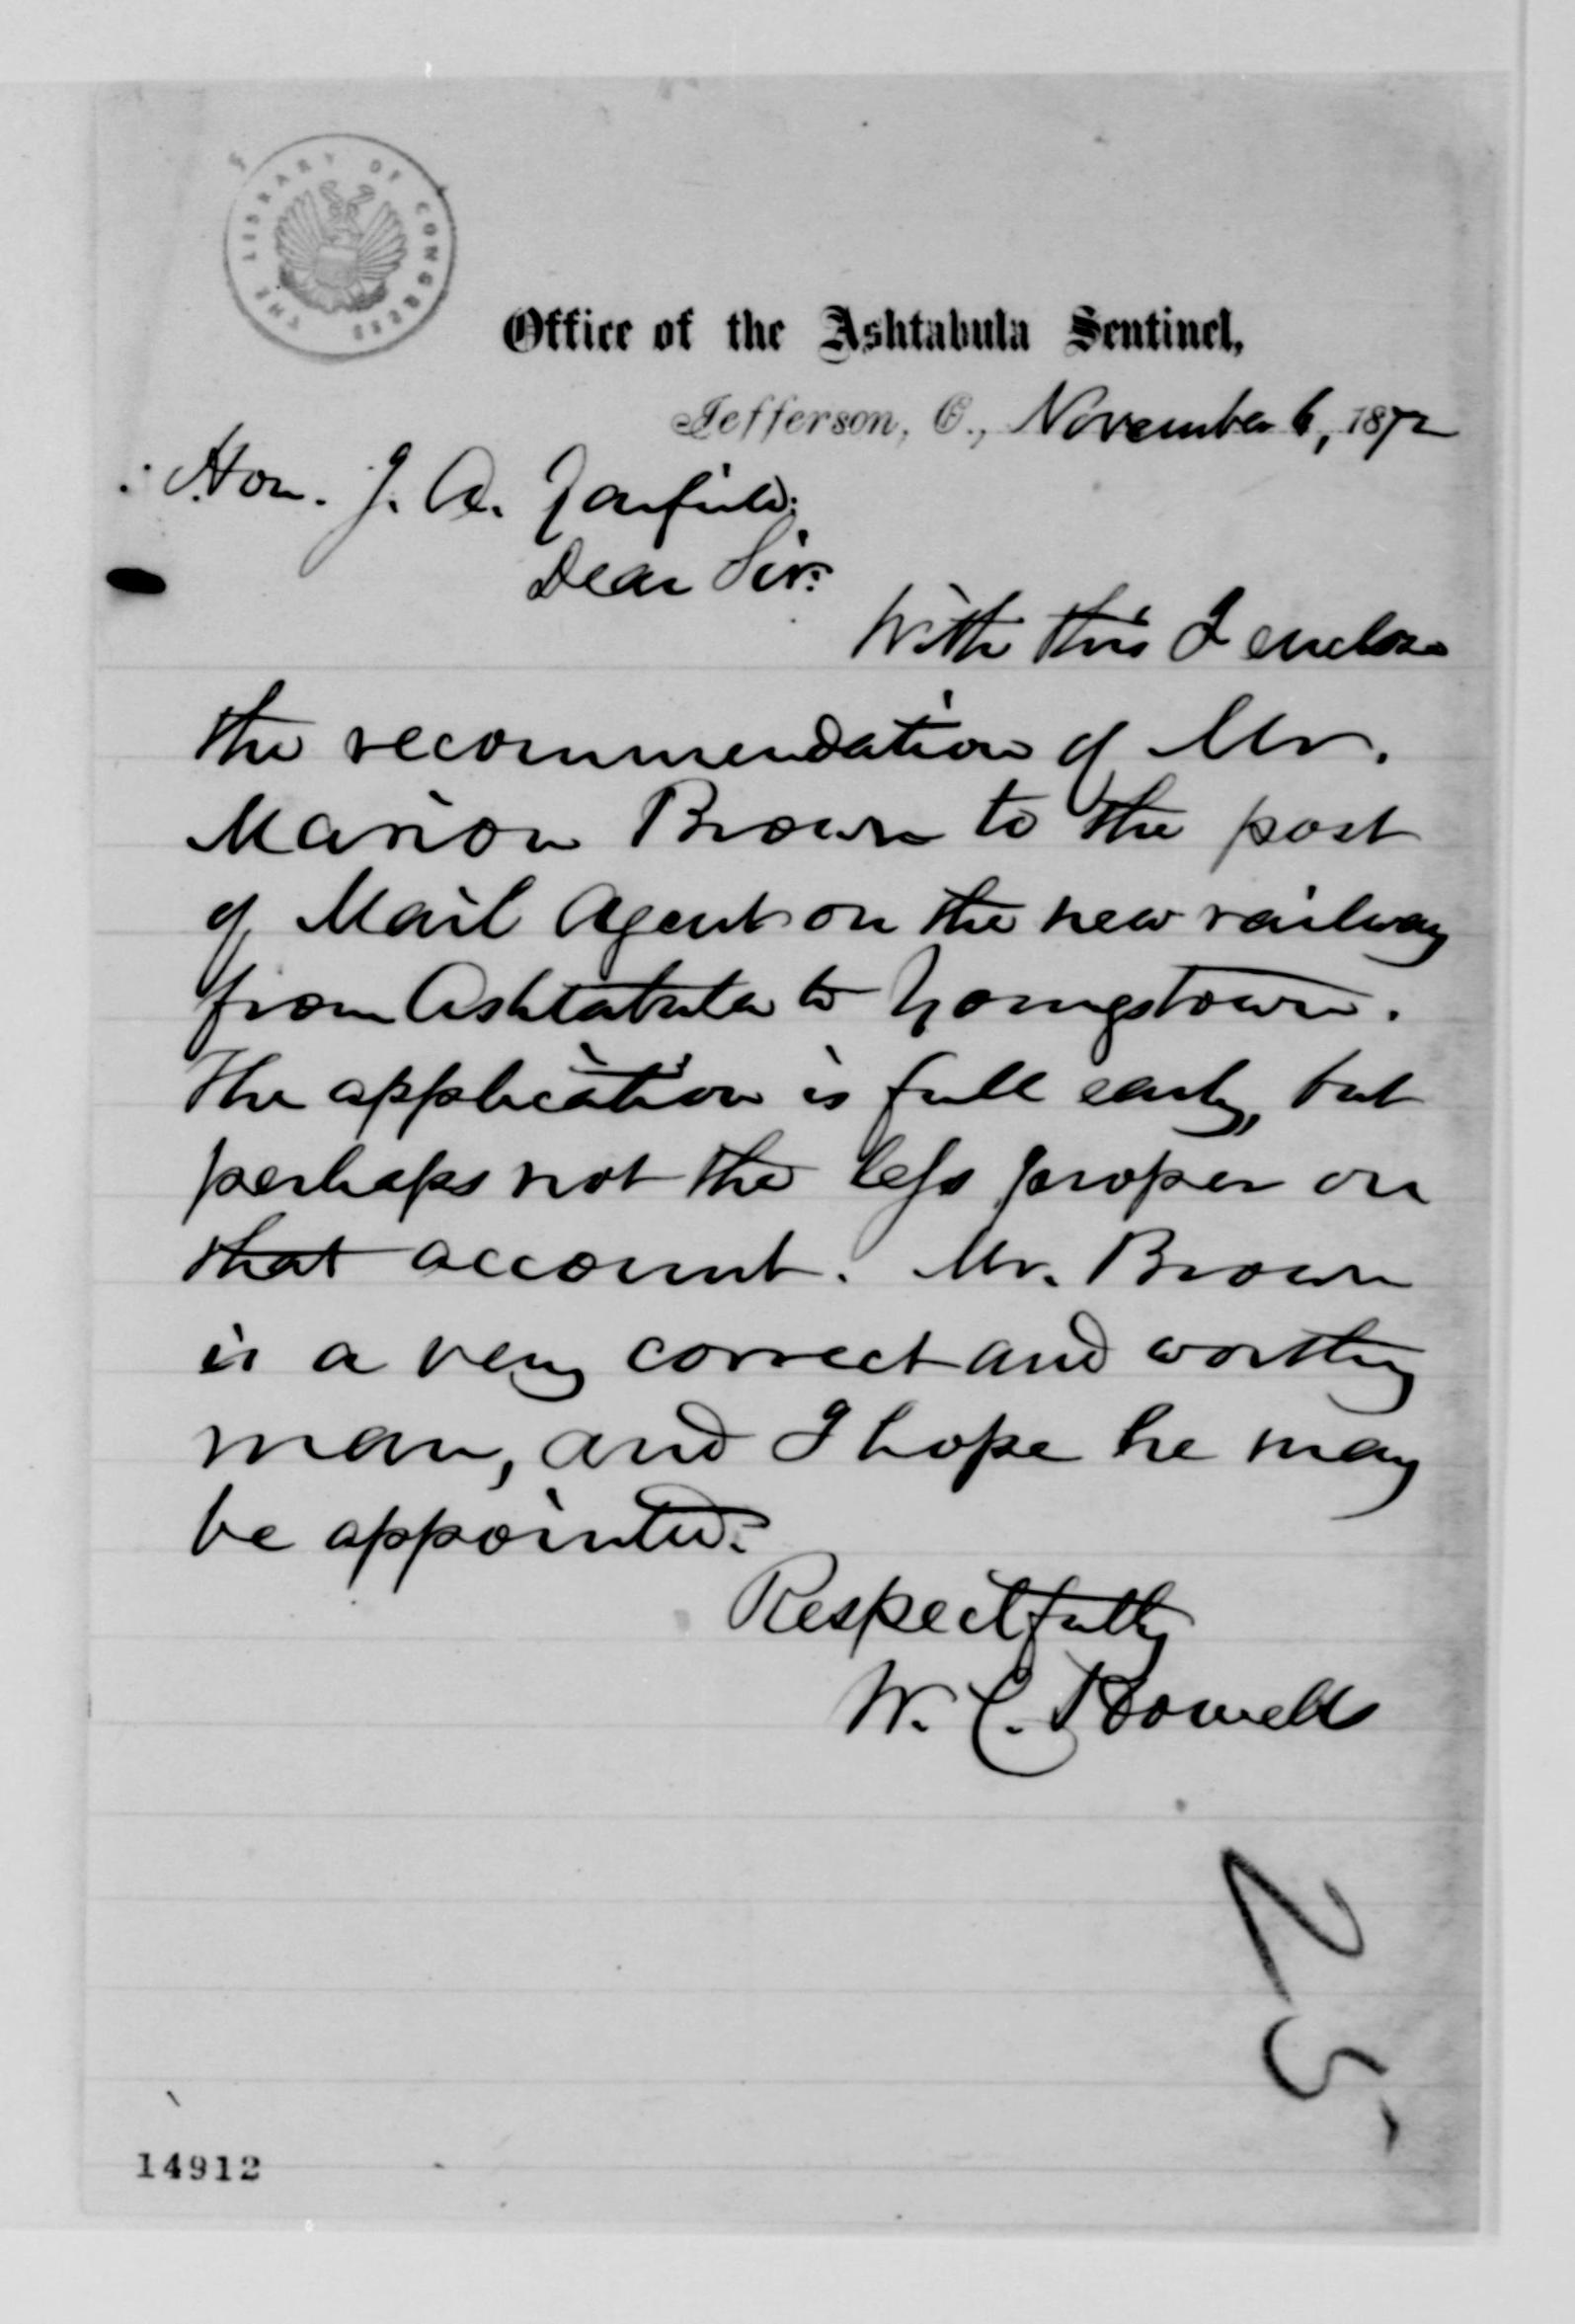 THE LIBRARY OF CONGRESS
Office of the Ashtabula Sentinel,
Jefferson, O., November 6, 1872
Hon. J. A. Garfield:
Dear Sir:
With this I enclose
the recommendation of Mr.
Marion Brown to the post
of Mail Agent on the new railway
from Ashtabula to Youngstown.
The application is full early, but
perhaps not the less proper on
that account. Mr. Brown
is a very correct and worthy
man, and I hope he may
be appointed.
Respectfully
W. C. Howells
25
14912